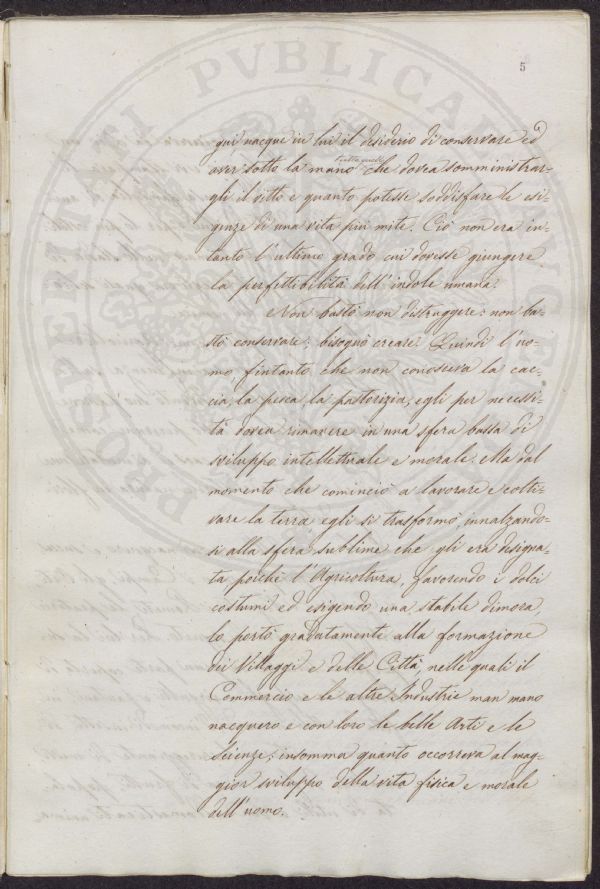 5
qui nacque in lui il desiderio di conservare ed
aver sotto la mano che dovea somministrar-
gli il vitto e quanto potesse soddisfare le esi-
genze di una vita più mite. Ciò non era in-
tanto l'ultimo grado cui dovesse giungere
la perfettibilità dell'indole umana.
Non bastò non distruggere: non ba-
stò conservare; bisognò creare. Quindi l'uo-
mo fintanto che non conosceva la cac-
cia, la pesca la pastorizia, egli per necessi-
tà dovea rimanere in una sfera bassa di
sviluppo intellettuale e morale. Ma dal
momento che cominciò a lavorare e colti-
vare la terra egli si trasformò innalzando-
si alla sfera sublime che gli era designa-
ta poichè l'Agricoltura, favorendo i dolci
costumi ed esigendo una stabile dimora,
lo portò gradatamente alla formazione
dei Villaggi e delle Città, nelle quali il
Commercio e le altre Industrie man mano
nacquero e con loro le belle Arti e le
Scienze; insomma quanto occorreva al mag-
gior sviluppo della vita fisica e morale
dell'uomo.
PROSPERITATI PVBLICAE